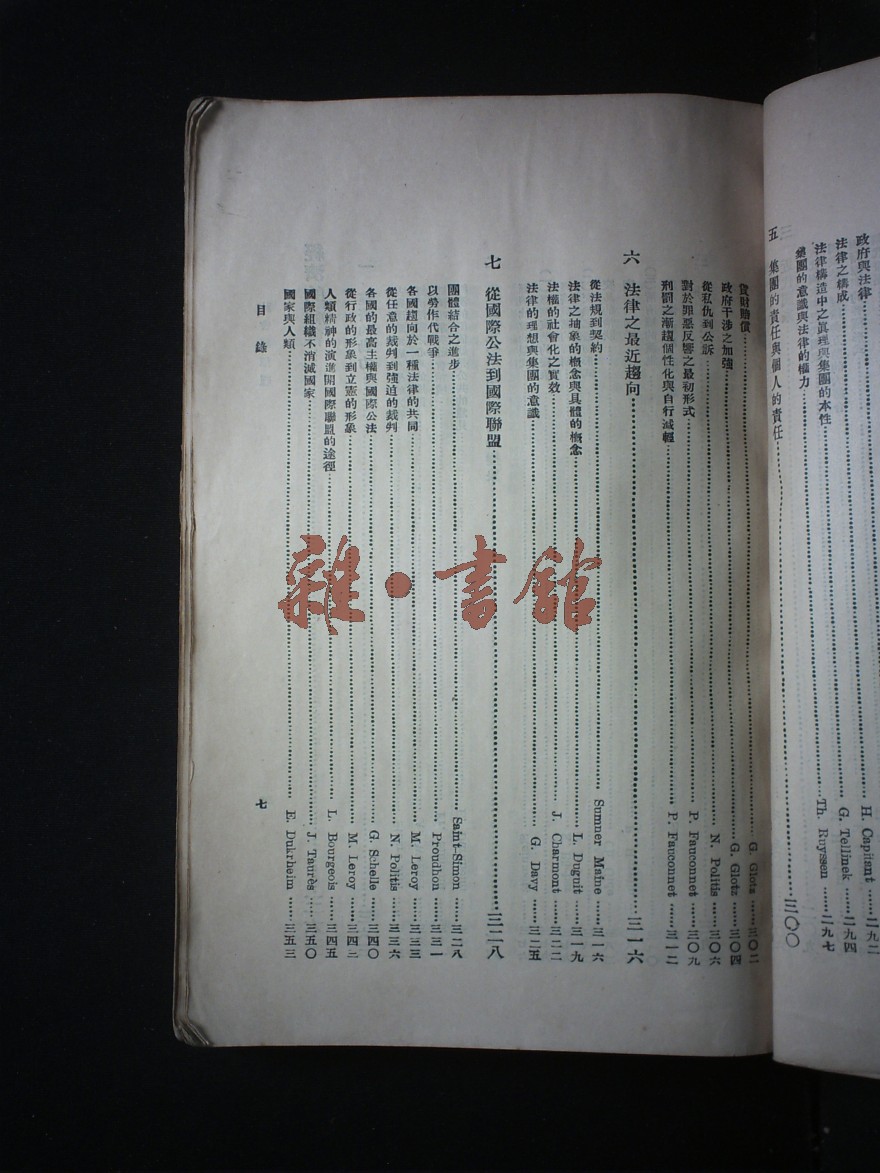 政府與法律……H. Capitant……二九二
法律之構成……G. Tellinek……二九四
法律構造中之眞理與集團的本性
集團的意識與法律的權力……Th. Ruyssen……二九七
五 集團的責任與個人的責任……三〇〇
貨財賠償……G. Glotz……三〇二
政府干涉之加強……G. Glotz……三〇四
從私仇到公訴……N. Politis……三〇六
對於罪惡反響之最初形式……P. Fauconnet……三〇九
刑罰之漸趨個性化與自行減輕……P. Fauconnet……三一二
六 法律之最近趨向……三一六
從法規到契約……Sumner Maine……三一六
法律之抽象的概念與具體的概念……L. Duguit……三一九
法權的社會化之實效……J. Charmont……三二二
法律的理想與集團的意識……G. Davy……三二五
七 從國際公法到國際聯盟……三二八
團體結合之進步……Saint-Simon……三二八
以勞作代戰爭……Proudhon……三三一
各國趨向於一種法律的共同……M. Leroy……三三三
從任意的裁判到強迫的裁判……N. Politis……三三六
各國的最高主權與國際公法……G. Schelle……三四〇
從行政的形象到立憲的形象……M. Leroy……三四二
人類精神的演進開國際聯盟的途徑……L. Bourgeois……三四五
國際組織不消滅國家……J. Taurès……三五〇
國家與人類……E. Dukrheim……三五三
目錄
七
雜·書館